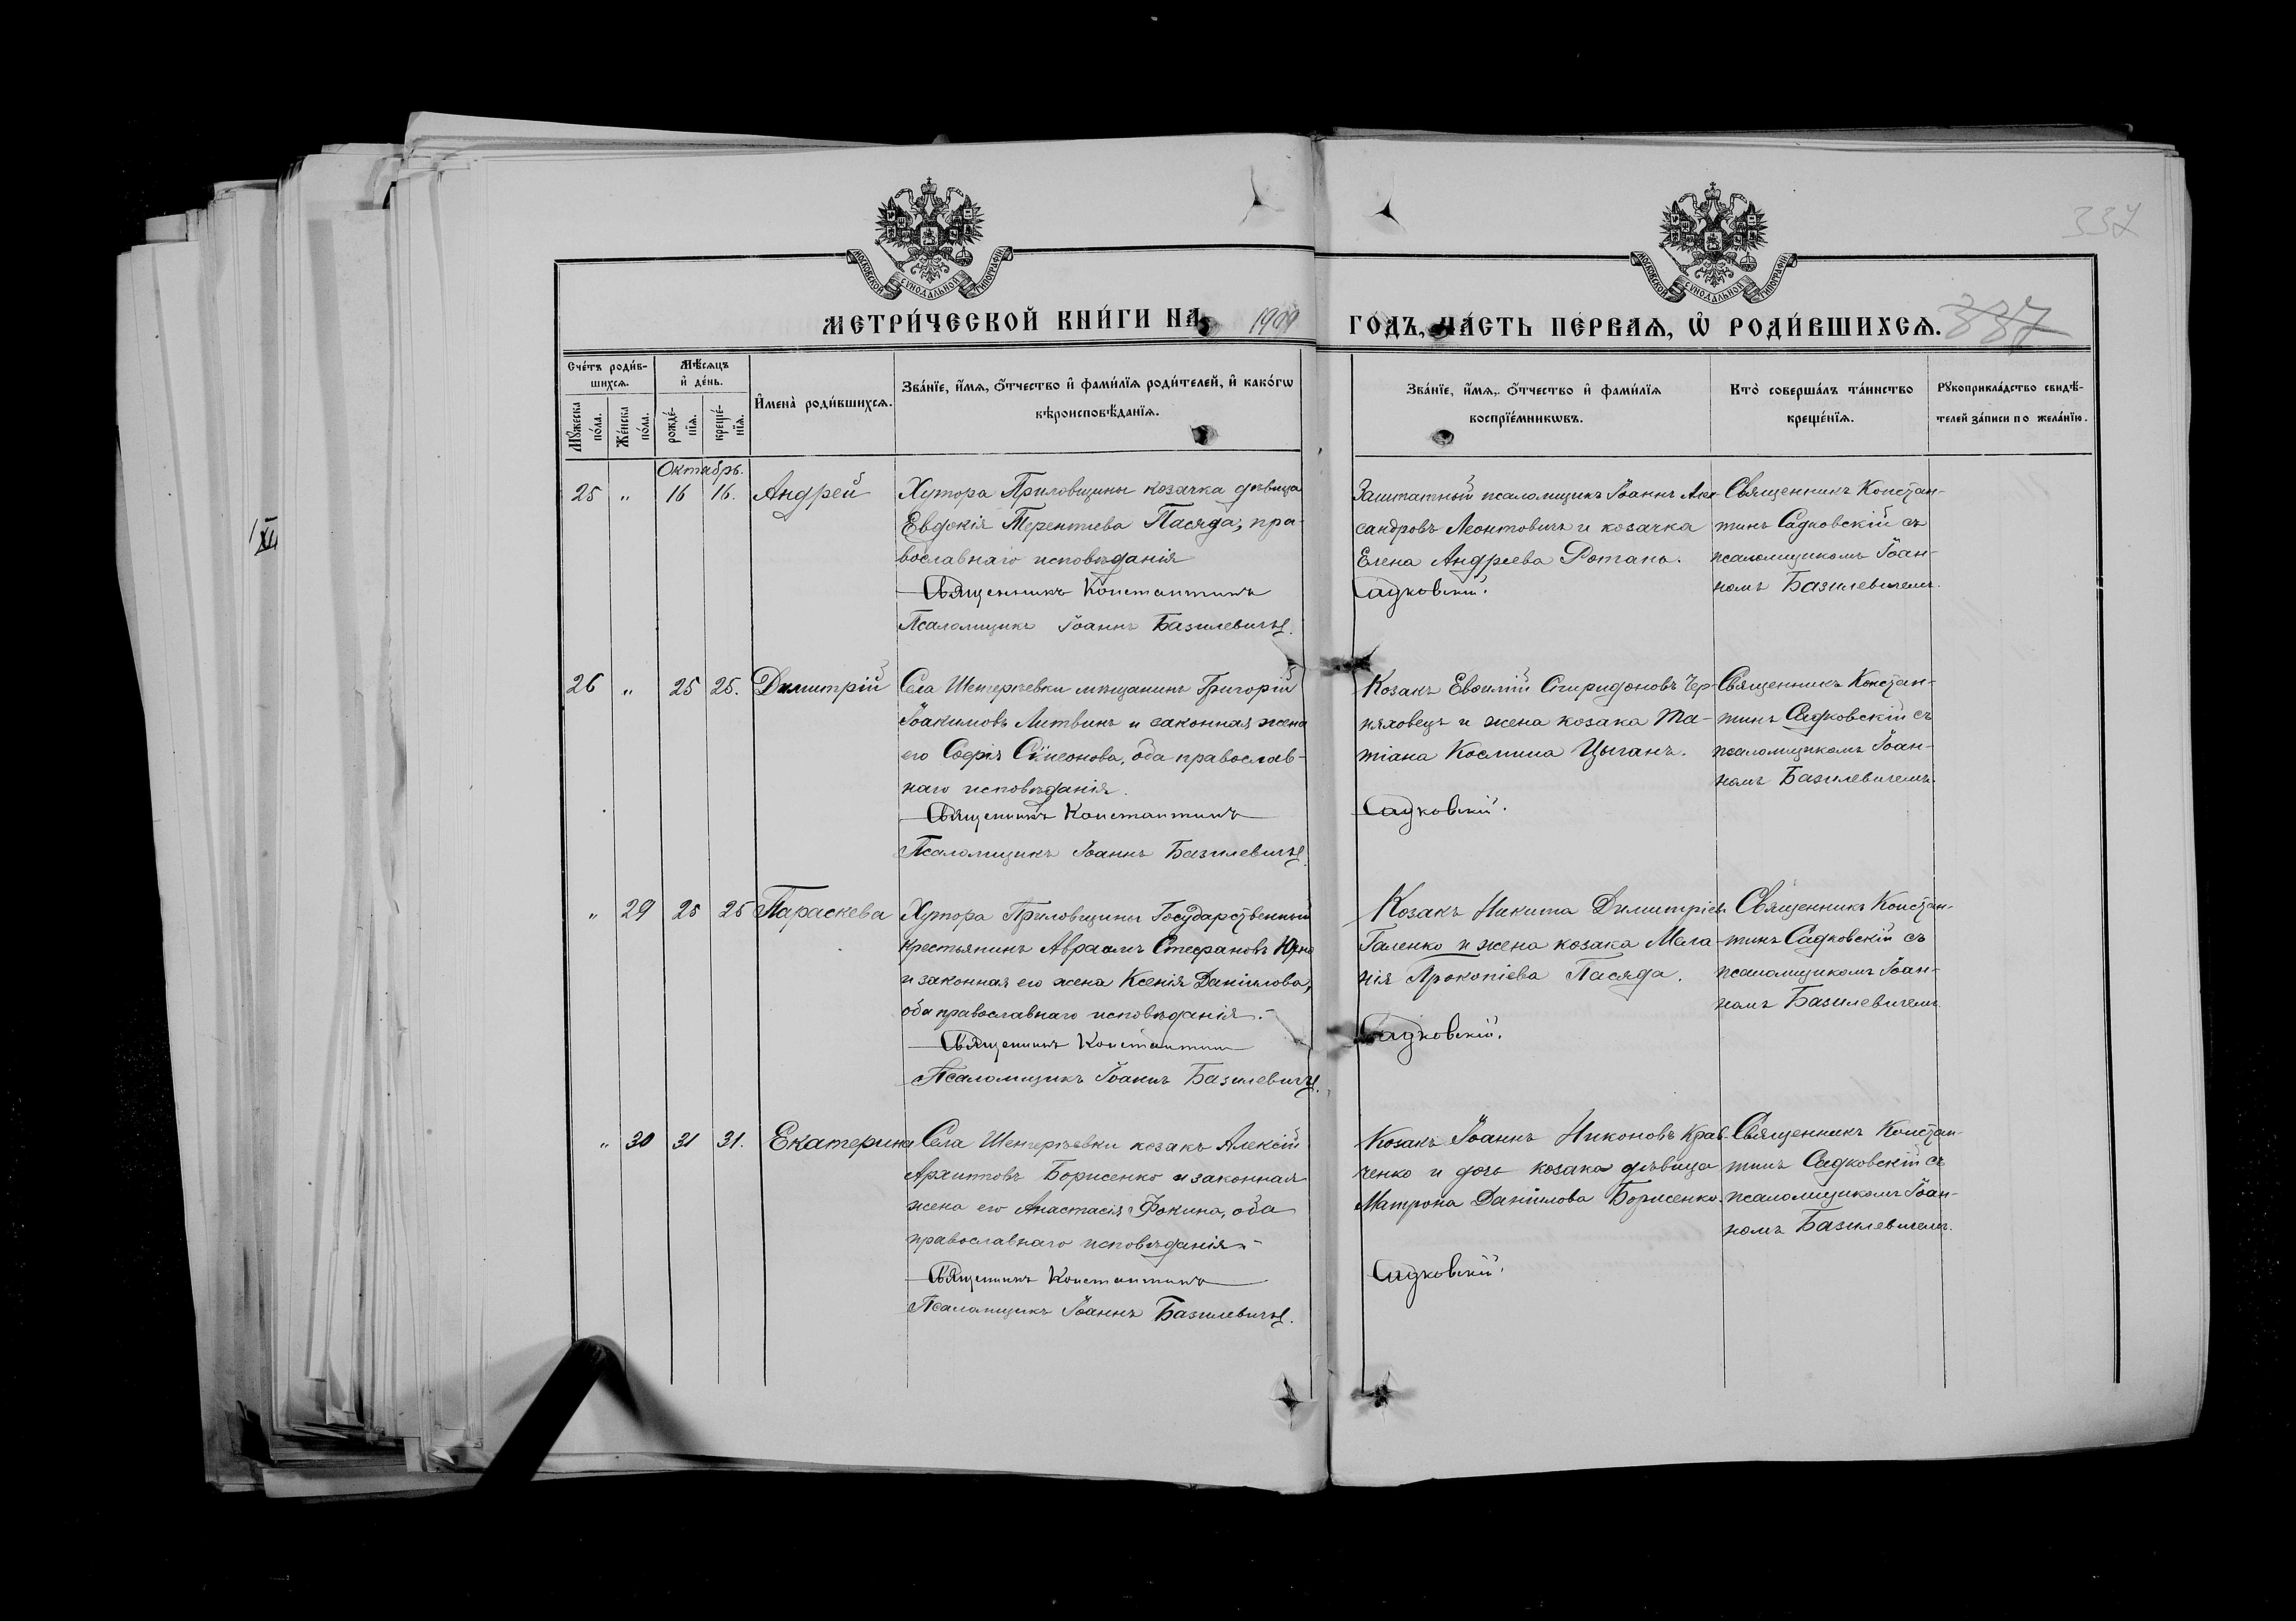 337
МОСКОВСКОЙ СѴНОДАЛЬНОЙ ТИПОГРАФІИ
МОСКОВСКОЙ СѴНОДАЛЬНОЙ ТИПОГРАФІИ
МЕТРИ́ЧЕСКОЙ КНИ́ГИ НА 1909
ГОДЪ, ЧА́СТЬ ПЕ́РВАѦ, Ѡ҆ РОДИ́ВШИХСѦ. 337
Сче́тъ роди́в-
шихсѧ.
Мѣ́сѧцъ
и҆ де́нь.
Мꙋ́жеска
по́ла.
Же́нска
по́ла.
рожде́-
нїѧ.
креще́-
нїѧ.
И҆мена̀ роди́вшихсѧ.
Зва́нїе, и҆́мѧ, о҆́тчество и҆ фами́лїѧ роди́телей, и҆ како́гѡ
вѣроисповѣ́данїѧ.
Зва́нїе, и҆́мѧ, о҆́тчество и҆ фами́лїѧ
воспрїе́мникѡвъ.
Кто̀ соверша́лъ та́инство
креще́нїѧ.
Рꙋкоприкла́дство свидѣ́-
телей за́писи по жела́нїю.
Октябрь.
25 " 16 16. Андрей
Хутора Приловщины козачка дѣвица
Евдокія Терентіева Пасяда, пра-
вославнаго исповѣданія
Священникъ Константинъ
Псаломщикъ Іоаннъ Базилевичъ.
Заштатный псаломщикъ Іоаннъ Алек-
сандровъ Леонтовичъ и козачка
Елена Андреева Ротань.
Садковскій.
Священникъ Констан-
тинъ Садковскій съ
псаломщикомъ Іоан-
номъ Базилевичемъ.
26 " 25 25. Димитрій
Села Шенгеріевки мѣщанинъ Григорій
Іоакимовъ Литвинъ и законная жена
его Софія Сѵмеонова, оба православ-
наго исповѣданія.
Священникъ Константинъ
Псаломщикъ Іоаннъ Базилевичъ.
Козакъ Евѳимій Спиридоновъ Чер-
няховецъ и жена козака Та-
тіана Космина Цыганъ.
Садковскій.
Священникъ Констан-
тинъ Садковскій съ
псаломщикомъ Іоан-
номъ Базилевичемъ.
" 29 25 25 Параскева
Хутора Приловщины Государственный
крестьянинъ Авраамъ Стефановъ
и законная его жена Ксенія Даніилова,
оба православнаго исповѣданія.
Священникъ Константинъ
Псаломщикъ Іоаннъ Базилевичъ.
Козакъ Никита Димитріев.
Галенко и жена козака Мела-
нія Прокопіева Пасяда.
Садковскій.
Священникъ Констан-
тинъ Садковскій съ
псаломщикомъ Іоан-
номъ Базилевичемъ
" 30 31 31. Екатерина
Села Шенгеріевки козакъ Алексій
Архиповъ Борисенко и законная
жена его Анастасія Фокина, оба
православнаго исповѣданія.
Священникъ Константинъ
Псаломщикъ Іоаннъ Базилевичъ.
Козакъ Іоаннъ Никоновъ Крав-
ченко и дочь козака дѣвица
Матрона Даніилова Борисенко.
Садковскій.
Священникъ Констан-
тинъ Садковскій съ
псаломщикомъ Іоан-
номъ Базилевичемъ.